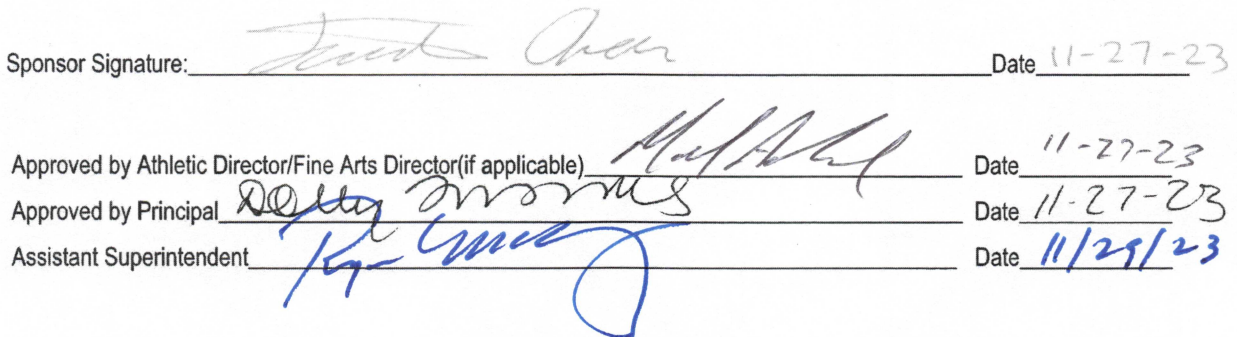 Sponsor Signature: Date 11-27-23
Approved by Athletic Director/Fine Arts Director(if applicable) Date 11-27-23
Approved by Principal Date 11-27-23
Assistant Superintendent Date 11/29/23